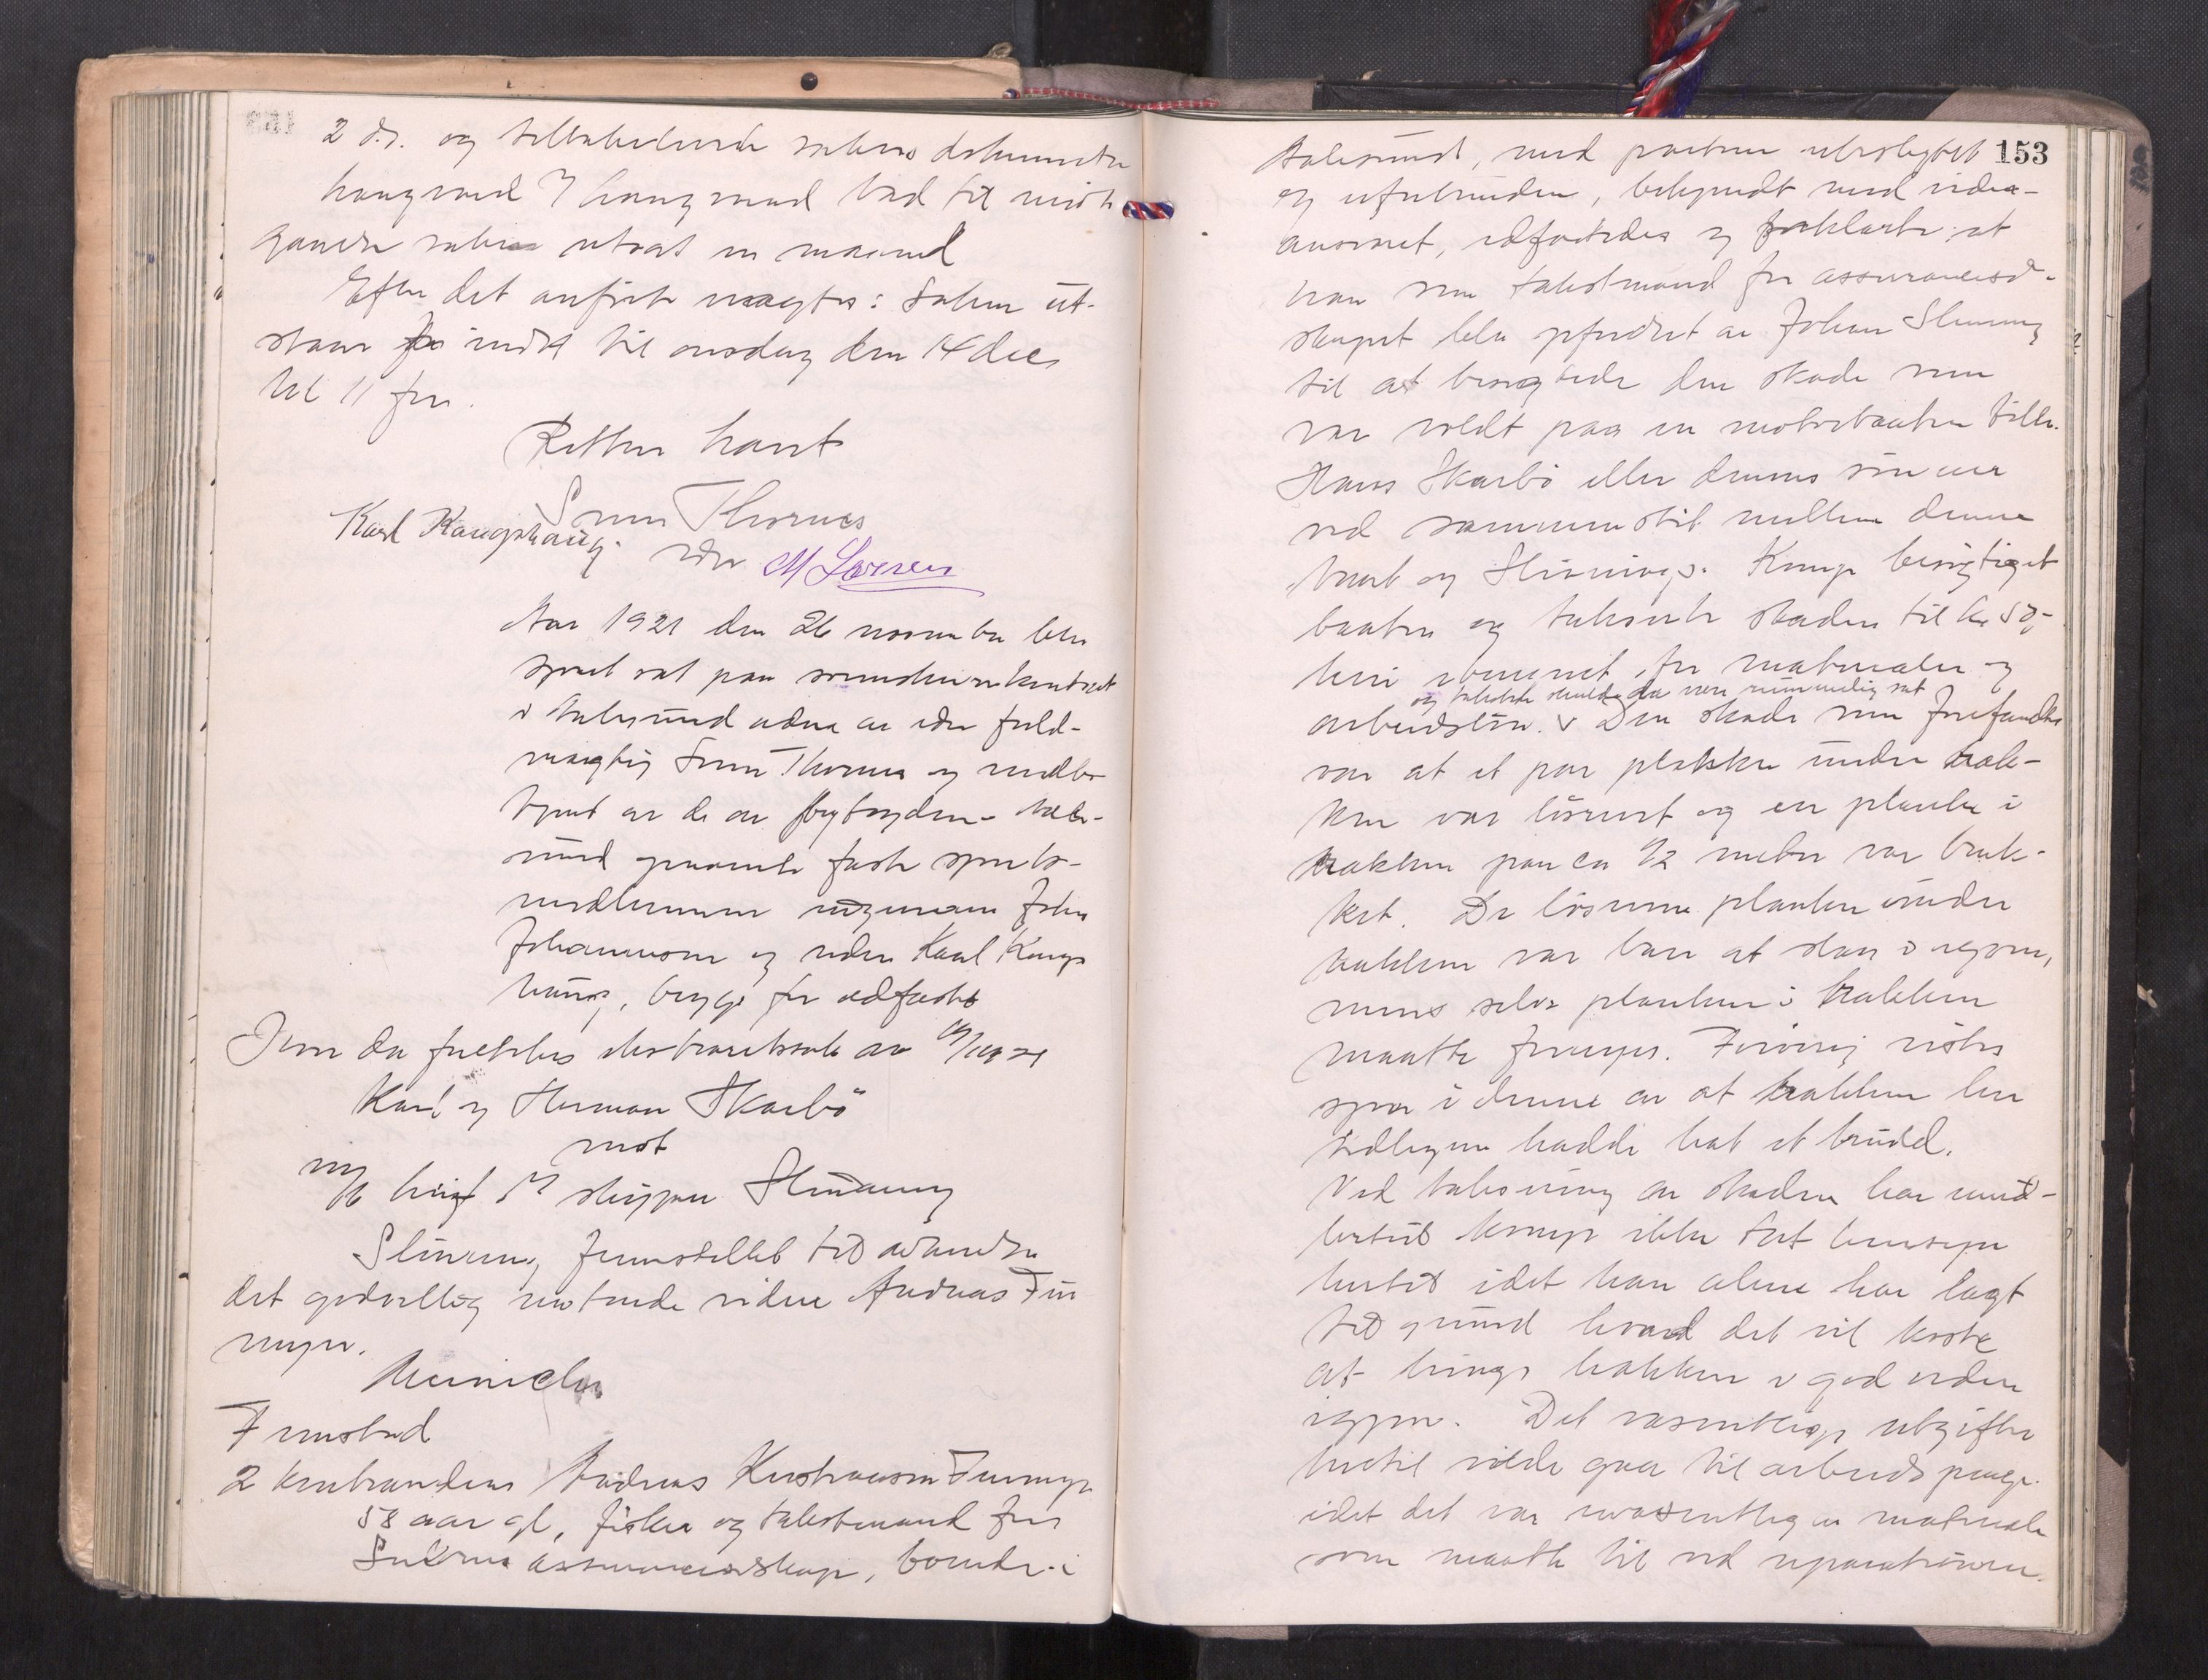 2 d.s. og tilbakeleverte sakens dokumenter
Kaagrand? Haagrand bad til
gaaende saken utsat en maaned
Efter det anførte vedtages: Saken ut-
staar indtil til onsdag den 14 des
kl 11 fm.
Retten hævet
Sven Thornes
Karl Kongshaug
edsv M Larsen
Aar 1921 den 26 november blev
sjøret sat paa sorenskriverkontoret
i Aalesund adm av edsv fuld-
mægtig Sven Thornes og
av de av byfogden i Aale-
sund opnævnte faste sjørets-
medlemmer John
Johannessen og reder Karl Kongs
haug, begge før edfæstet
Hvor da foretokes ekstraretssak av 19/10 21
Karl og Herman Skarbø
mot
skipper Slinning
Slinning fremstillet til avhørelse
det godvillig møtende vidne Andreas Fur
myr.
Fremstod
2 Andreas Kristiansen Furmyr
58 aar gl, fisker og takstmand for
assuranceselskap, boende i
153
Aalesund, med parterne ubeslegtet
og uforbunden, bekjendt med vidne-
ansvaret, edfæstedes og forklarte at
han som takstmand for assurancesel-
skapet blev opfordret av Johan Slinning
til at besigtige den skade som
var voldt paa en motorbaaten tilh.
Hans Skarbø eller dennes sønner
ved sammenstøt mellem denne
baat og Slinnings. Komp besigtiget
baaten og taksert skaden til kr 50,-
heri iberegnet for materialer og
og taksten skulde da være rummelig sat
arbeidsløn. v Den skade som forefandtes
var at et par planker under hak-
ken var løsnet og en planke i
hakken paa ca 1/2 meter var bræk-
ket. De løsnene planker under
hakken var bare at slaa i igjen,
mens selve planken i hakken
maatte fornyes. Forøvrig vistes
spor i denne av at hakken her
tidligere hadde hat et brudd.
Ved taksering av skaden har imid-
lertid komp ikke tat hensyn
hertil idet han alene har lagt
til grund hvad det vil koste
at bringe hakken i god orden
igjen. Det væsentlige utgifter
hertil vilde gaa til arbeidspenge
idet det var uvæsentlig av materiale
som maatte til ved reparationen.